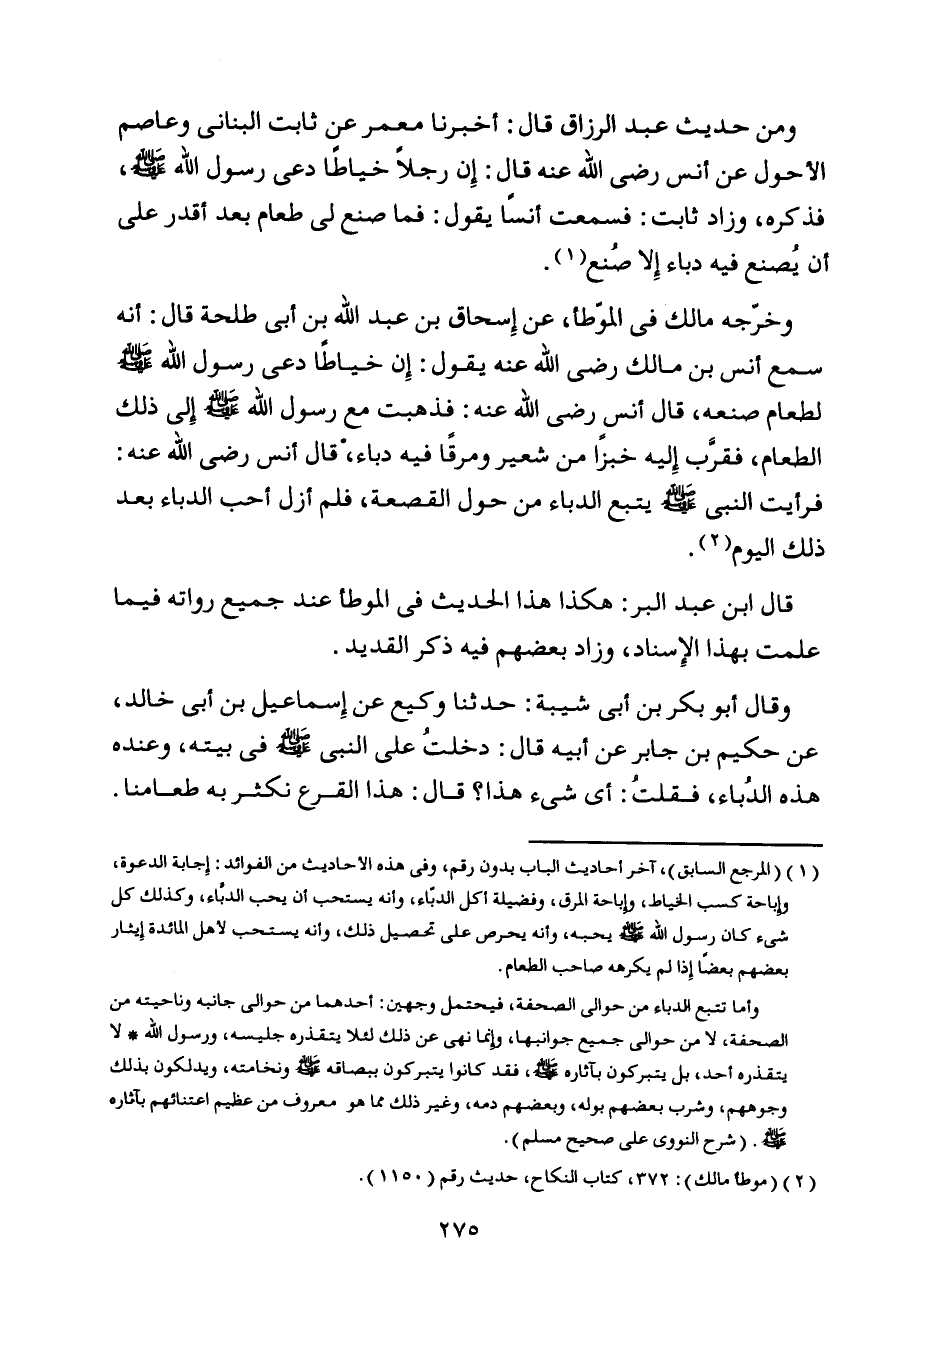 ومن حديث عبد الرزاق قال: أخبرنا معمر عن ثابت البنانى وعاصم
الأحول عن أنس رضى الله عنه قال: إن رجلاً خياطًا دعى رسول الله ﷺ،
فذكره، وزاد ثابت: فسمعت أنسًا يقول: فما صنع لى طعام بعد أقدر على
أن يُصنع فيه دباء إلا صُنع(١).
وخرّجه مالك فى الموّطأ، عن إسحاق بن عبد الله بن أبى طلحة قال: أنه
سمع أنس بن مالك رضى الله عنه يقول: إن خياطًا دعى رسول الله ﷺ
لطعام صنعه، قال أنس رضى الله عنه: فذهبت مع رسول الله ﷺ إلى ذلك
الطعام، فقرَّب إليه خبزًا من شعير ومرقًا فيه دباء، قال أنس رضى الله عنه:
فرأيت النبى ﷺ يتبع الدباء من حول القصعة، فلم أزل أحب الدباء بعد
ذلك اليوم(٢).
قال ابن عبد البر: هكذا هذا الحديث فى الموطأ عند جميع رواته فيما
علمت بهذا الإسناد، وزاد بعضهم فيه ذكر القديد.
وقال أبو بكر بن أبى شيبة: حدثنا وكيع عن إسماعيل بن أبى خالد،
عن حكيم بن جابر عن أبيه قال: دخلتُ على النبى ﷺ فى بيته، وعنده
هذه الدُباء، فقلتُ: أى شىء هذا؟ قال: هذا القرع نكثر به طعامنا.
(١) (المرجع السابق)، آخر أحاديث الباب بدون رقم، وفى هذه الأحاديث من الفوائد: إجابة الدعوة،
وإباحة كسب الخياط، وإباحة المرق، وفضيلة أكل الدبّاء، وأنه يستحب أن يحب الدبُّاء، وكذلك كل
شىء كان رسول الله ﷺ يحبه، وأنه يحرص على تحصيل ذلك، وأنه يستحب لأهل المائدة إيثار
بعضهم بعضًا إذا لم يكرهه صاحب الطعام.
وأما تتبع الدباء من حوالى الصحفة، فيحتمل وجهين: أحدهما من حوالى جانبه وناحيته من
الصحفة، لا من حوالى جميع جوانبها، وإنما نهى عن ذلك لئلا يتقذره جليسه، ورسول الله * لا
يتقذره أحد، بل يتبركون بآثاره ﷺ، فقد كانوا يتبركون ببصاقه ﷺ ونخامته، ويدلكون بذلك
وجوههم، وشرب بعضهم بوله، وبعضهم دمه، وغير ذلك مما هو معروف من عظيم اعتنائهم بآثاره
ﷺ. (شرح النووى على صحيح مسلم).
(٢) (موطأ مالك): ٣٧٢، كتاب النكاح، حديث رقم (١١٥٠).
٢٧٥